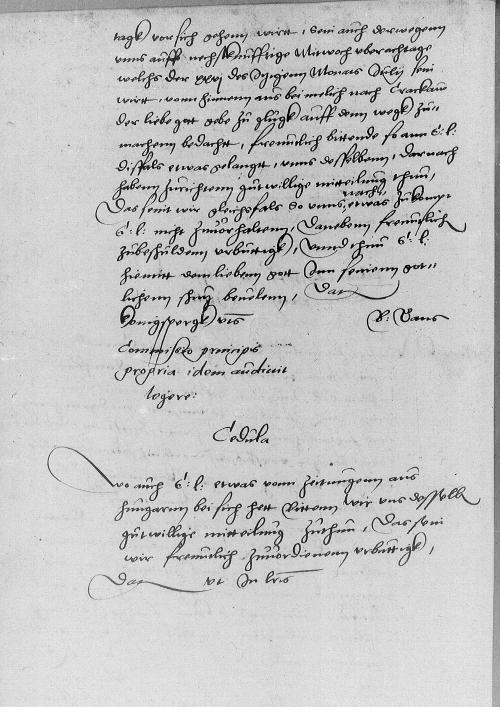 tagk vor sich gehenn wirt, sein auch derwegenn
vnns auff nechstkunfftige Mitwoch vber achtage
welchs der xxxj des itzigenn Monats Julij sein
wirt, vonn hinnenn aus bei melich nach Crackaw
der liebe got gebe zu gluck auff denn wegk zu-
machenn bedacht, freuntlich bittende so ann E: l:
disfals etwas gelangtt, vnns desselbenn, darnach
habenn zurichtenn gutwillige mitteilung thun,
Das seint wir gleichsfals so vnns nachr etwas zukompt
E: l: nicht zuuorhaltenn, Danebenn freuntlich
zubeschuldenn vrbuttigk, vnnd thun E: l:
hiemitt dem liebenn gott Inn seinem got-
lichenn schutz beuelenn, Dat
konigspergk vts
Commissio principis
propria idem audiuit
legere:
Cedula
Wo auch E: l: etwas vonn zeitungenn aus
hungarnn bei sich hett Bittenn wir vns desselb
gutwillige mitteilung zuthun, Das sein
wir freuntlich zuuordienenn vrbuttigk,
Dat vt In lris